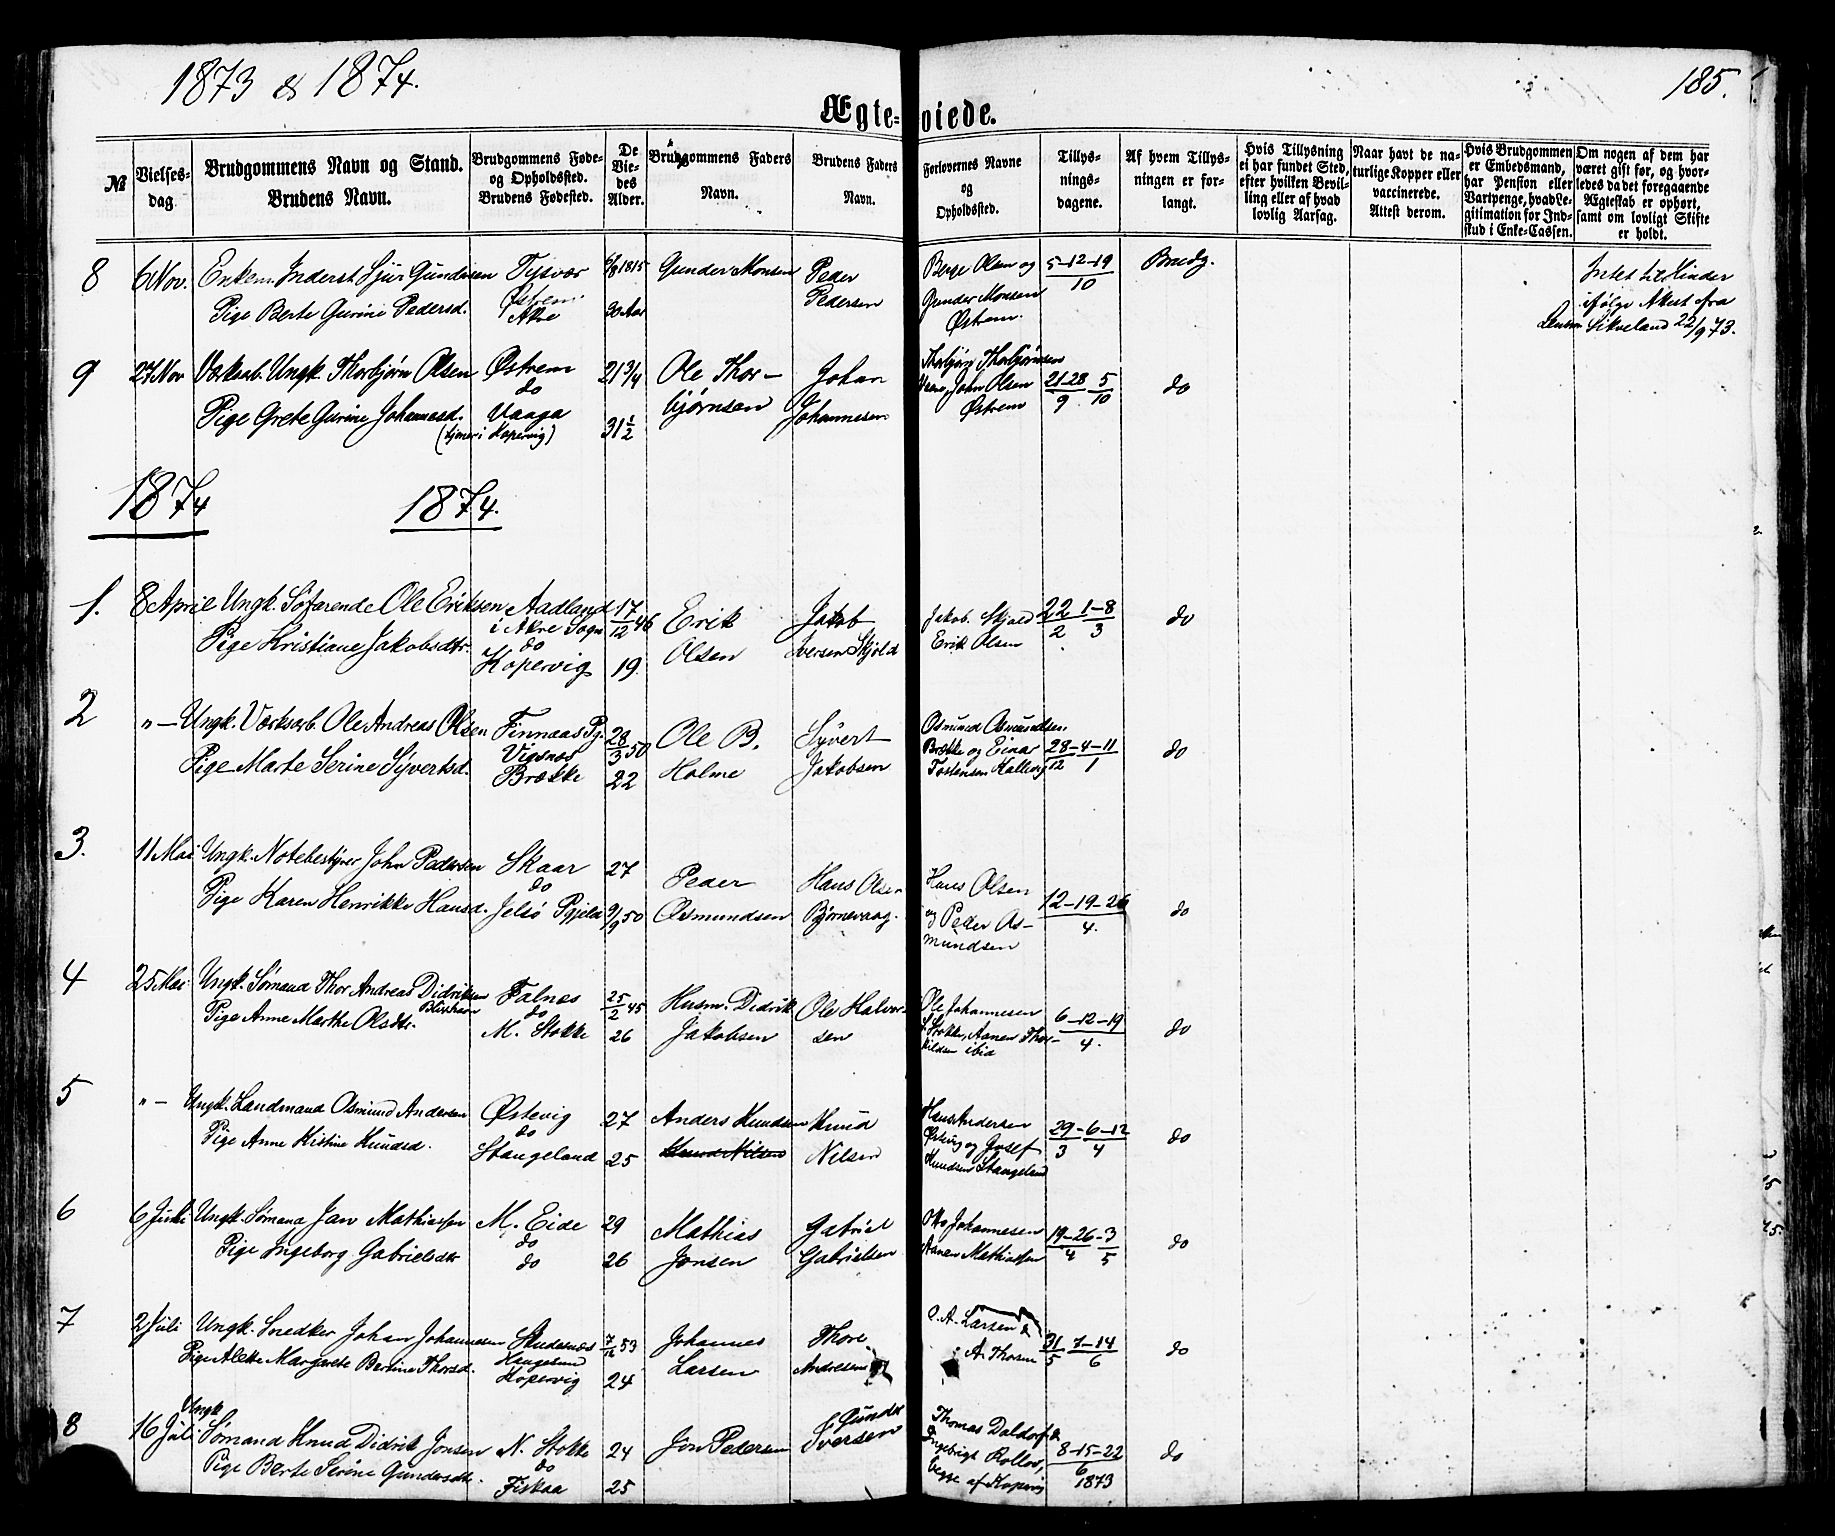 1873 & 1874.
185.
Ægte-viede.
№
Vielses-dag.
Brudgommens Navn og Stand.
Brudens Navn.
Brudgommens Føde-
og Opholdssted.
Brudens Fødested.
De Vie-des Alder.
Brudgommens Faders
Navn.
Brudens Faders
Navn.
Forlovernes Navne
og
Opholdssted.
Tillys-nings-dagene.
Af hvem Tillys-ningen er for-langt.
Hvis Tillysning ei har fundet Sted, efter hvilken Bevil-ling eller af hvad lovlig Aarsag.
Naar havt de na-turlige Kopper eller vaccinerede. Attest derom.
Hvis Brudgommen er Embedsmand, har Pension eller Vartpenge, hvad Le-gitimation for Ind-skud i Enke-Cassen.
Om nogen af dem har været gift før, og hvor-ledes da det foregaaende Ægteskab er ophørt, samt om lovligt Skifte er holdt.
8 6 Nov. Enkem. Inderst Sjur Gundersen Tysvær 6/8 1815 Gunder Monsen Peder Berge Olsen og 5-12-19 Brudg. Intet til Hinder
Østrem Pedersen Gunder Monsen 10 ifølge Attest fra
Pige Berte Gurine Pedersd. Akre 30 Aar Østrem. Lensm. Sikveland 22/9 73.
9 27 Nov Værksarb. Ungk. Thorbjørn Olsen Østrem 21 3/4 Ole Thor- Johan Thorbjørn Thorbjørnsen
do bjørnsen Johannesen John Olsen 21-28 5 do
Pige Grete Gurine Johannesd. Vaaga 31 1/2 Østrem 9 10
(tjener i Kopervig)
1874 1874.
1. 8 April Ungk. Søfarende Ole Eriksen Aadland 17/12 46 Erik Jakob Jakob Skjold 22 1-8 do
i Akre Sogn Olsen Iversen Skjold Erik Olsen 2 3
do
Pige Kristiane Jakobsdtr. Kopervig 19.
2 "— Ungk. Værksarb. Ole Andreas Olsen Finnaas Pg. 28/3 50 Ole B. Syvert Osmund Osmundsen
Vigsnes Holme Jakobsen Brekke og Einar 28-4-11 do
Pige Marte Serine Syvertsd. Brække 22 Tostensen Kallevig 12 1
3. 11 Mai Ungk. Notebestyrer John Pedersen Skaar 27 Peder Hans Olsen Hans Olsen 12-19-26 do
do Osmundsen Bjørnevaag. og Peder Os- 4.
Pige Karen Henrikke Hansd. Jelsø Pgjeld 9/9 50 mundsen
4 25 Mai Ungk. Sømand Thor Andreas Didriksen Falnes 25/2 45 Husm. Didrik Ole Halvor- Ole Johannesen 6-12-19 do
do Jakobsen sen Stokke, Aanen Thor- 4.
Pige Anne Marthe Olsdtr. M. Stokke 26 kildsen ibid
5 "— Ungk. Landmand Osmund Andersen Østevig 27 Anders Knudsen Knud Hans Andersen 29-6-12 do
do Knud Nilsen Nilsen Østvig og Josef 3 4
Pige Anne Kistine Knudsd. Stangeland 25 Knudsen Stangeland
6 6 Juni Ungk. Sømand Jan Mathiassen M. Eide 29 Mathias Gabriel Otto Johannesen 19-26-3 do
do Jonsen Gabrielsen Aanen Mathiassen 4 5
Pige Ingeborg Gabrielsdtr do 26
7 2 Juli Ungk. Snedker Johan Johannesen Skudesnes 7/12 53 Johannes Thore O. A. Larsen & 31 7-14 do
Haugesund Larsen Andresen A. Thorsen 5 6
Pige Alette Margrete Bertine Thorsd. Kopervig 24
8 16 Juli Ungk. Sømand Knud Didrik Jonsen N. Stokke 24 Jon Pedersen Gunder Thomas Daldorf &
do Iversen Ingebrigt Rolles, 8-15-22 do
Pige Berte Serine Gundersdtr. Fiskaa 25 begge af Kopervig 6 1873